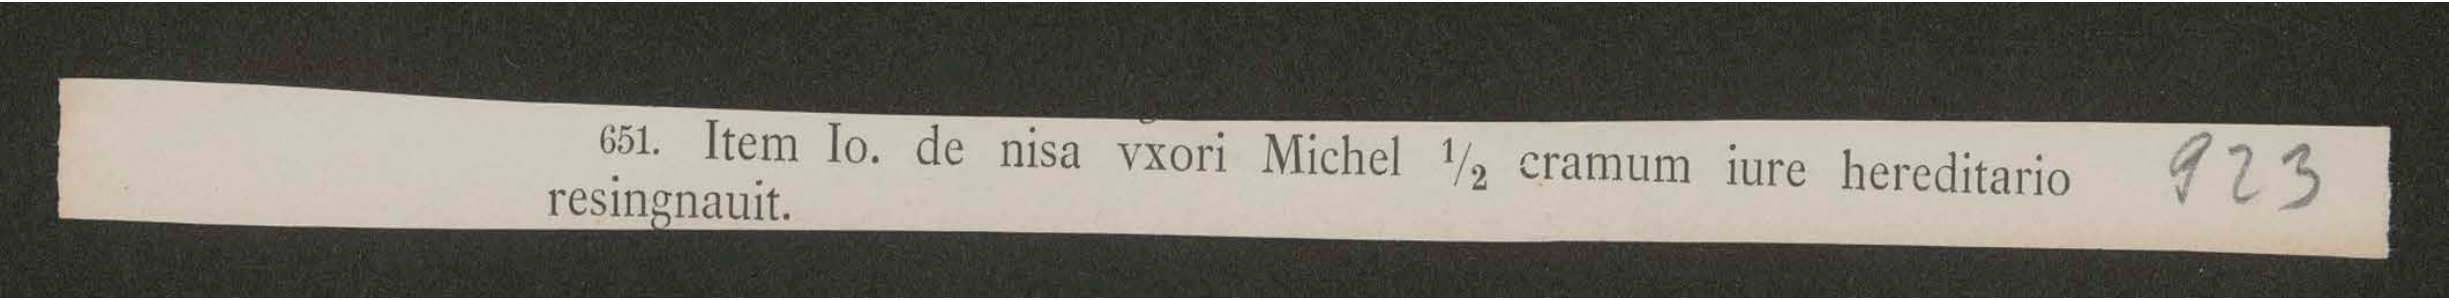 651. Item Io. de nisa vxori Michel 1/2 cramum iure hereditario 923
resingnauit.